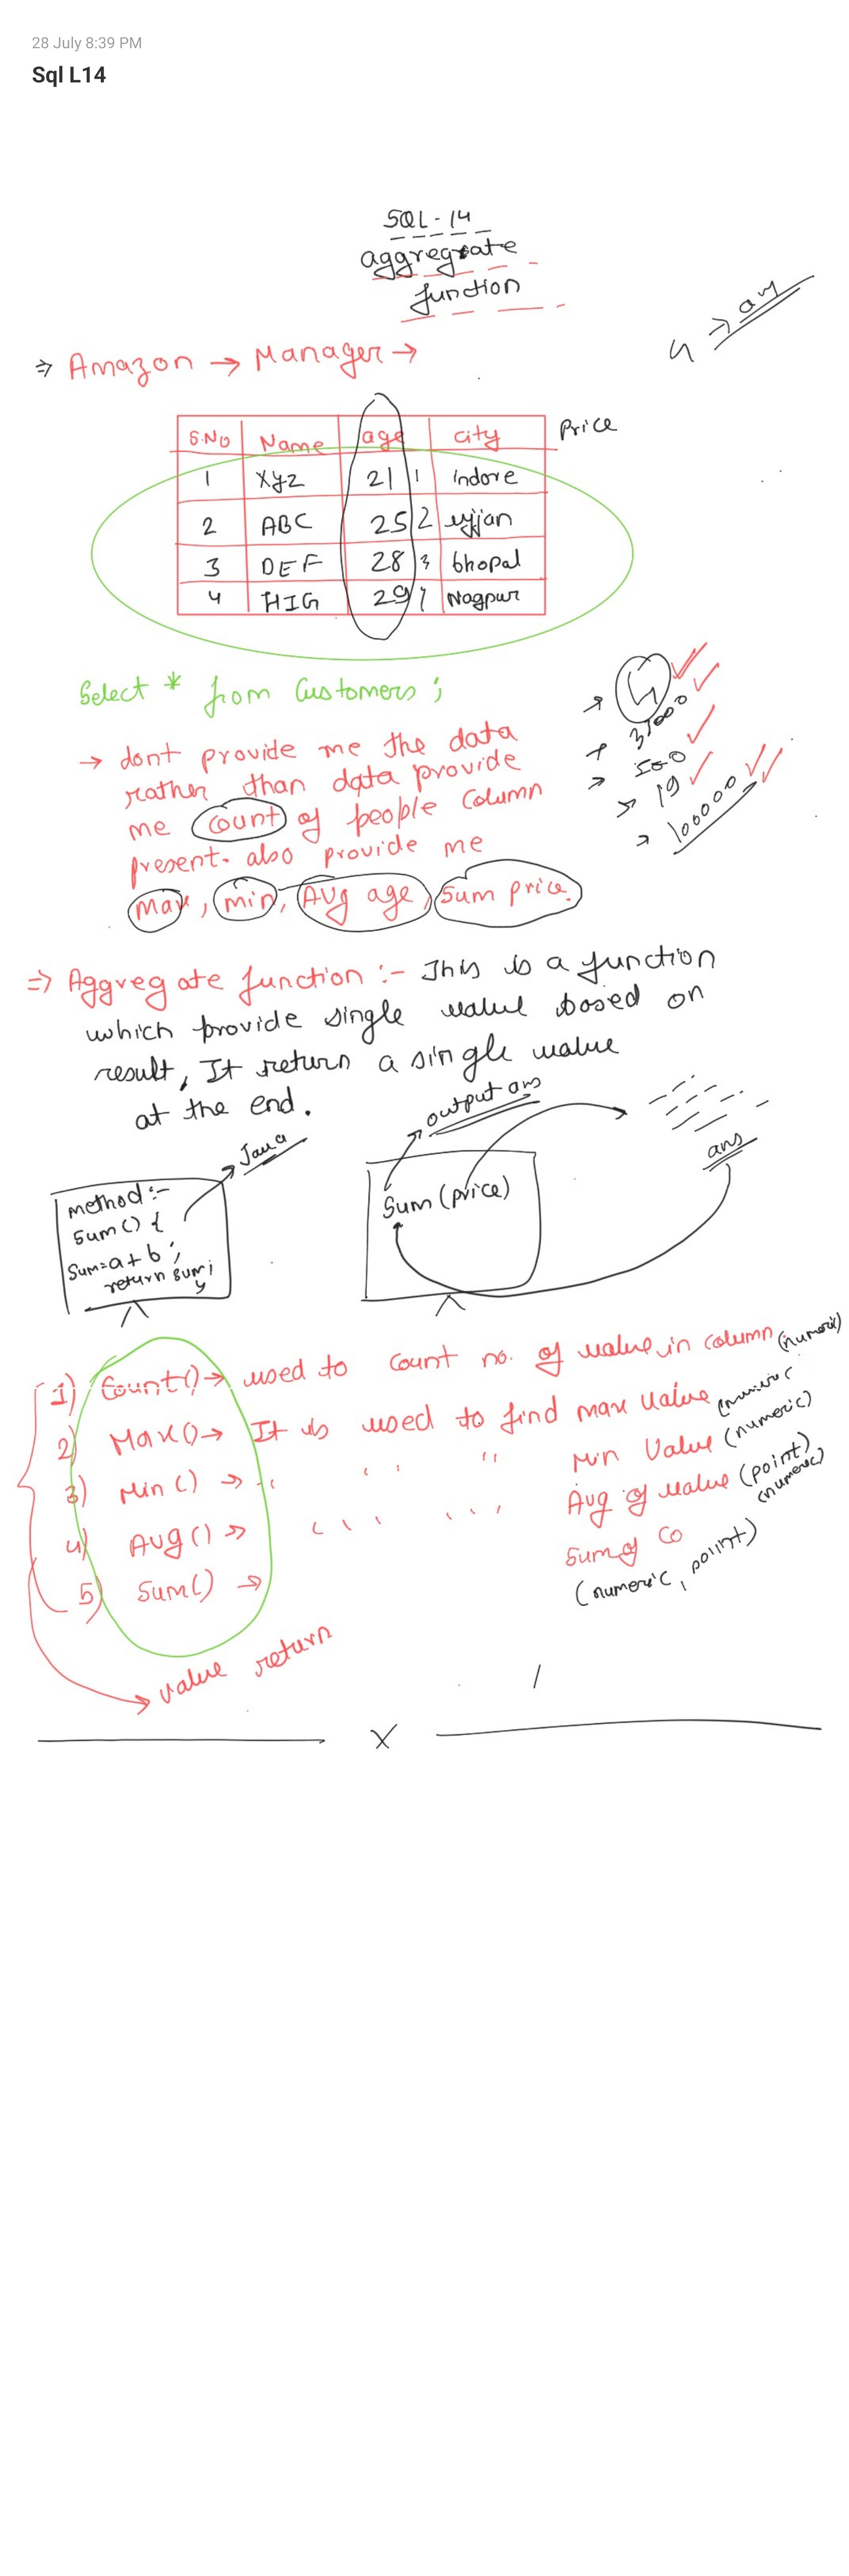 28 July 8:39 PM
Sql L14
SQL-14
aggregate
function
4 => any
=> Amazon → Manager →
S.No Name age city Price
1 Xyz 21 1 Indore
2 ABC 25 2 ujjan
3 DEF 28 3 bhopal
4 HIG 29 Nagpur
Select * from Customers;
→ dont provide me the data
rather than data provide
me count of people column
present. also provide me
max, min, Avg age, sum price.
→ 4
→ 500
→ 19
→ 100000
=> Aggregate function :- This is a function
which provide single value based on
result, It return a single value
at the end.
Java
output ans
ans
method :-
sum() {
sum=a+b;
return sum;
}
Sum(price)
1) Count() → used to count no. of value in column (numeric)
2) Max() → It is used to find max value (numeric
3) Min() → " " " Min Value (numeric)
4) Avg() → " " Avg of value (point)
(numeric)
5) Sum() → Sum of Co
(numeric, point)
value return
X